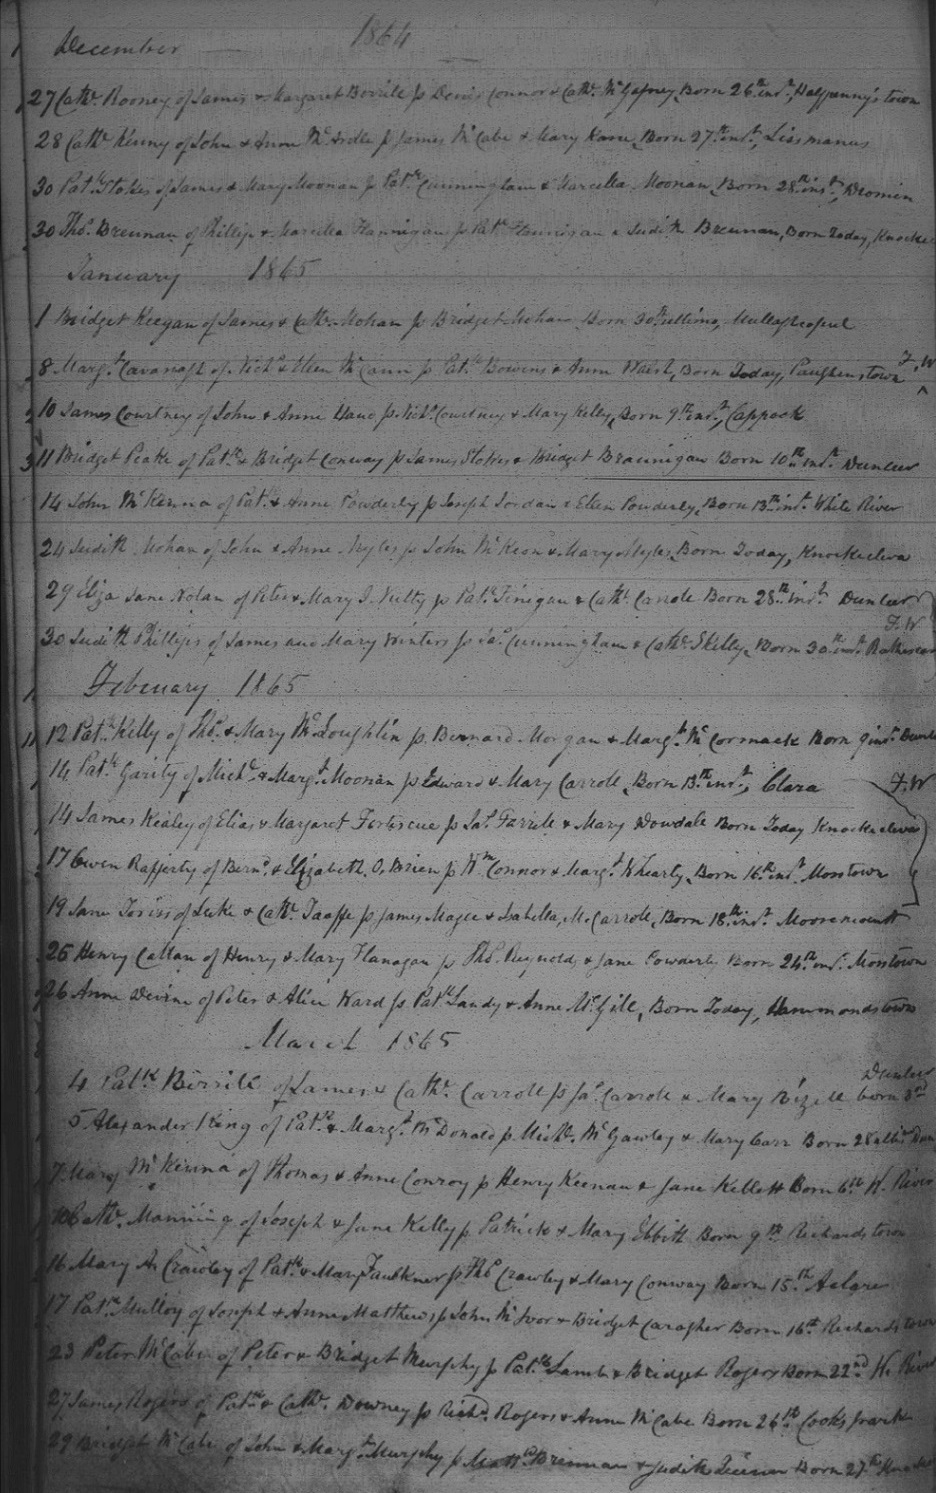 December 1864
27 Cath. Rooney of James & Margaret Birrile p Denis Connor & Cath. McGafney, Born 26th inst, Halfpenny's town
28 Cath Kenny of John & Anne McArdle p James McCabe & Mary Kane, Born 27th inst, Lissmanus
30 Patk Stokes of James & Mary Moonan p Patk Cunningham & Marcella Moonan, Born 28th inst, Dromin
30 Thos. Brennan of Phillip & Marcella Flannigan p Patk Flannigan & Judith Brennan, Born Today,
January 1865
1 Bridget Keegan of James & Cath. Mohan p Bridget Mohan Born 30th ultimo,
8 Margt Cavanagh of Nichs & Ellen McCann p Patk Bowens & Ann Walsh, Born Today, Paughanstown F.W
10 James Courtney of John & Anne p Nichs Courtney & Mary Kelly, Born 9th inst, Cappock
11 Bridget Peake of Patk & Bridget Conway p James Stokes & Bridget Brannigan Born 10th inst Dunleer
14 John McKenna of Patk & Anne Powderly p Joseph Jordan & Ellen Powderly, Born 13th inst White River
24 Judith Mohan of John & Anne Myles p John McKeon & Mary Myles, Born Today, Knockclwa
29 Eliza Jane Nolan of Peter & Mary J. Nulty p Patk Finigan & Cath. Carrole Born 28th inst Dunleer
F.W
30 Judith Phillips of James and Mary Winters p Jas Cunningham & Cath. Skelly, Born 30th inst
February 1865
12 Patk Kelly of Thos. & Mary McLoughlin p Bernard Morgan & Margt McCormack Born 9 inst
14 Patk Garity of Michl & Margt Moonan p Edward & Mary Carrole, Born 13th inst, Clara F.W
14 James Kealey of Elias & Margaret Fortescue p Jas. Farrele & Mary Dowdale Born Today Knockclwa
17 Owen Rafferty of Bernd & Elizabeth O'Brien p Wm Connor & Margt Whearty, Born 16th inst Mosstown
19 Jane of Luke & Cath. Taaffe p James Magee & Isabella McCarrole, Born 18th inst Mooremount
25 Henry Callan of Henry & Mary Flanagan p Thos. Reynolds & Jane Powderly Born 24th inst Mosstown
26 Anne Devine of Peter & Alice Ward p Patk Landy & Anne McGill, Born Today, Hammondstown
March 1865
Dunleer
4 Patk Birrile of James & Cath. Carroll p Jas. Carrole & Mary Rizell born 3rd
5 Alexander King of Patk & Margt McDonald p Michl McGawley & Mary Carr Born 28 ult
7 Mary McKenna of Thomas & Anne Conroy p Henry Keenan & Jane Kellett Born 6th W. River
10 Cath. Manning of Joseph & Jane Kelly p Patrick & Mary Ebbitt Born 9th Richardstown
16 Mary A Crawley of Patk & Mary Faulkner p Thos Crawley & Mary Conway Born 15th
17 Patk Mulloy of Joseph & Anne Matthews p John McIvor & Bridget Caragher Born 16th Richardstown
23 Peter McCabe of Peter & Bridget Murphy p Patk Lamb & Bridget Rogers Born 22nd W. River
27 James Rogers of Patk & Cath. Downey p Richd Rogers & Anne McCabe Born 26th Cookspark
29 Bridget McCabe of John & Margt Murphy p Matt. Brennan & Judith Born 27th